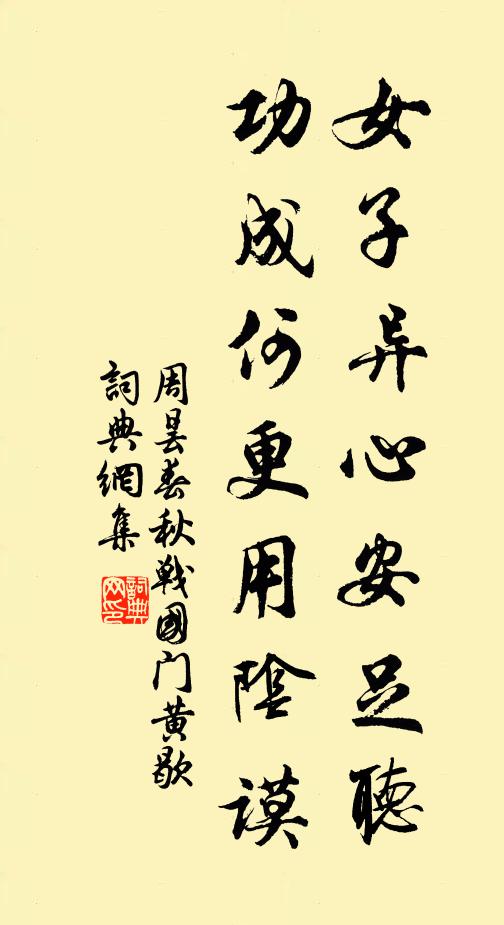 女子异心安足聽
功成何更用陰謨
周昙春秋戰國门黄歇
詞典網集
詞典网印